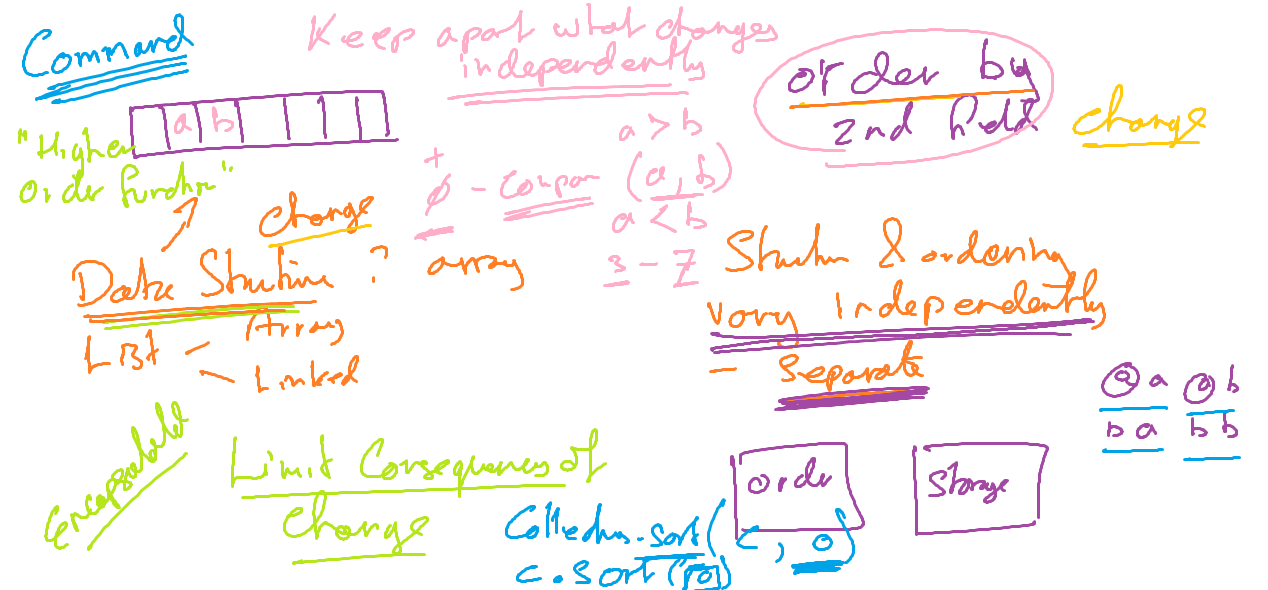 Command
Keep apart what changes
independently
order by
2nd field
change
a b
"Higher
order function"
a > b
+
0 - compare (a, b)
a < b
3 - 7
change
Data Structure ?
array
List - Array
- Linked
Structure & ordering
vary independently
- separate
a a a b
b a b b
encapsulated
Limit Consequences of
change
order
storage
Collections.sort(c, o)
c.sort(o)